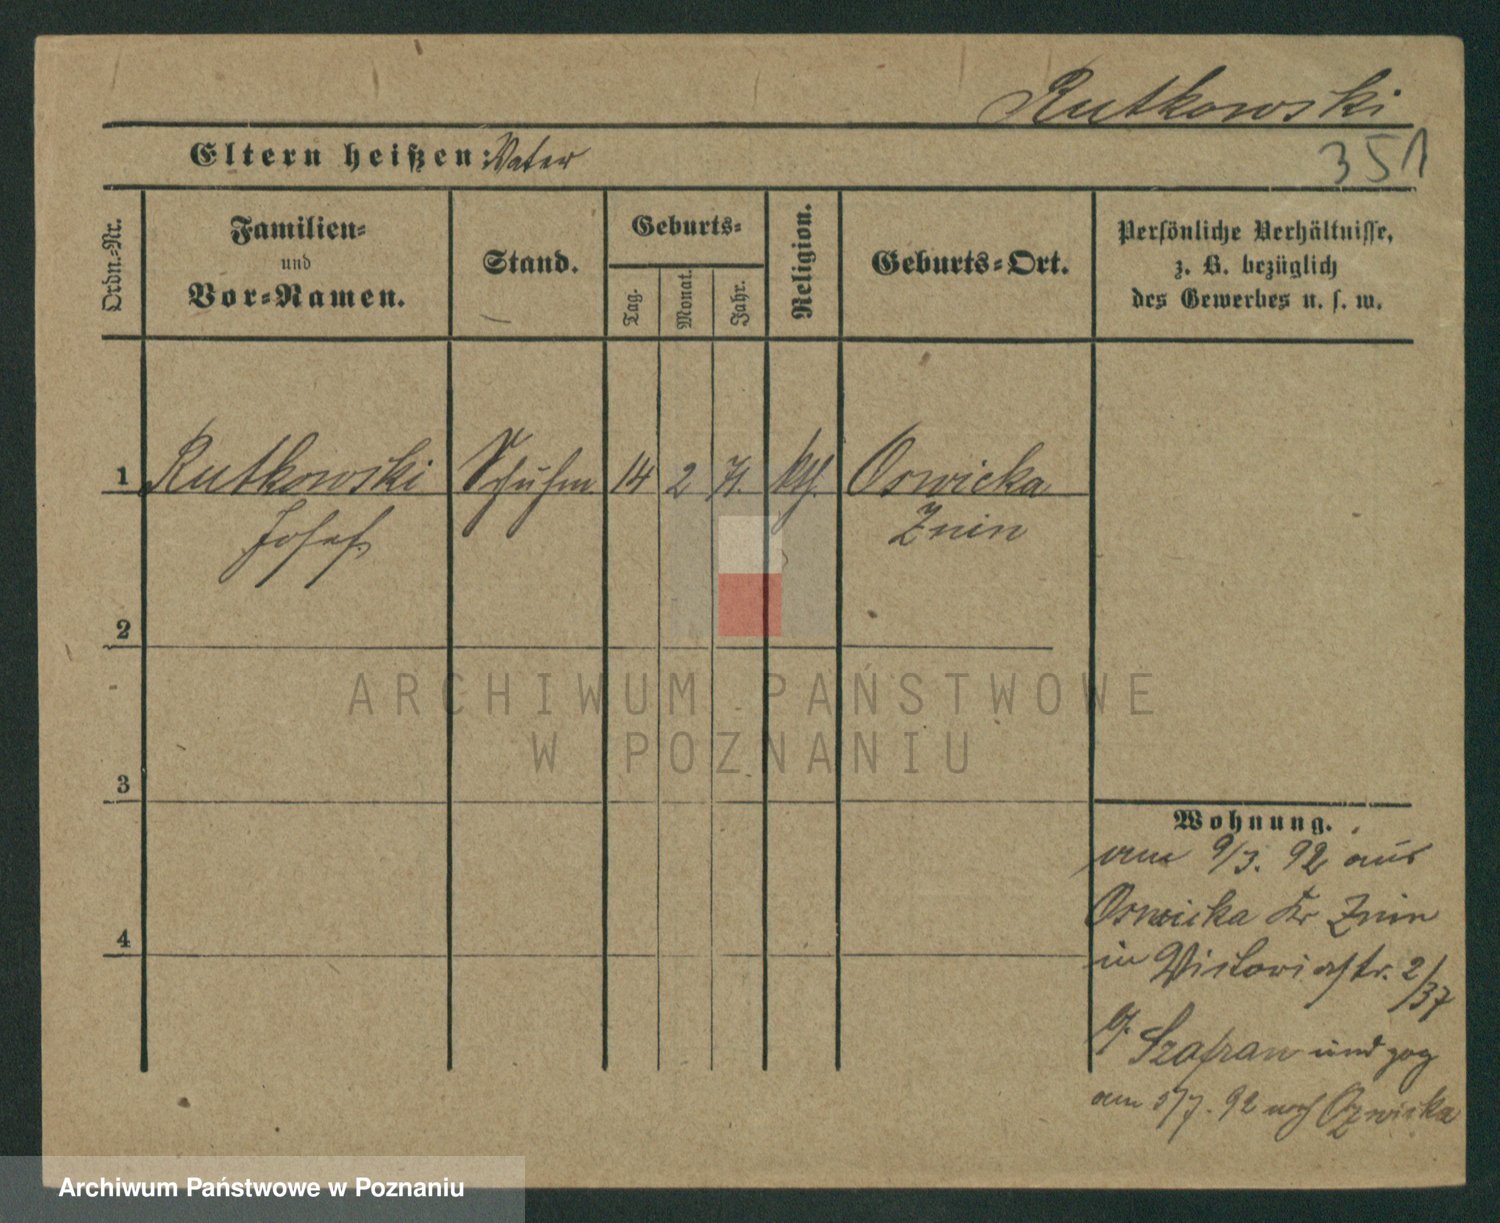 Rutkowski
351
Eltern heißen: Vater
Ordn.-Nr.
Familien-
und
Vor-Namen.
Stand.
Geburts-
Tag.
Monat.
Jahr.
Religion.
Geburts-Ort.
Persönliche Verhältnisse,
z. B. bezüglich
des Gewerbes u. s. w.
1 Rutkowski Schuhm. 14 2 71. kth. Oswieka
Josef Znin
2
3
4
Wohnung.
am 9/3. 92 aus
Osnieka Kr Znin
in Victoriastr. 2/37
b. Szafran und zog
am 5/7. 92 nach Ozwieka
ARCHIWUM PAŃSTWOWE
W POZNANIU
Archiwum Państwowe w Poznaniu